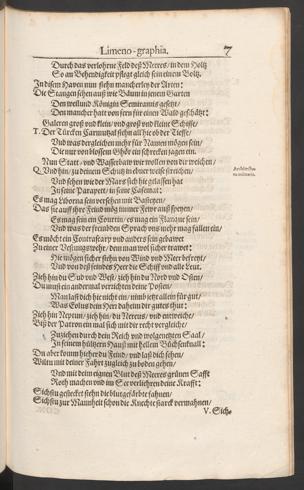 Limeno-graphia. 7
Durch das verlohrne Feld deß Meeres/ in dem Holtz
So an Behendigkeit pflegt gleich sein einem Boltz.
In disem Haven nun stehn mancherley der Arten:
Die Stangen sehen auß wie Bäum in jenem Garten
Den weilund Königin Semiramis gesetzt/
Den mancher hatt von fern für einen Wald geschätzt:
Galeren groß vnd klein/ vnd groß vnd kleine Schiffe/
T. Der Türcken Carmutzal stehn all hie ob der Tieffe/
Vnd was dergleichen mehr für Namen mögen sein/
Die nur von blossem Ghör ein schrecken jagen ein.
Nun Statt/ vnd Wasserbaw wir wollen von dir weichen/
Q. Vnd hin/ zu deinem Schutz in einer weise streichen/
Vnd sehen wie der Mars sich hie gelassen hat
In seine Parapett/ in seine Casemat:
Es mag Liborna sein versehen mit Basteyen/
Das sie auff ihre Feind mög immer Fewr außspeyen/
Es mag sein ein Courtin/ es mag ein Flanque sein/
Vnd was der frembden Sprach vns mehr mag fallen ein/
Es möcht ein Contrascarp vnd anders sein gebawet
Zu einer Vestungswehr/ dem man wol sicher trawet:
Hie mögen sicher stehn von Wind vnd Meer befreyt/
Vnd von deß feindes Heer die Schiff vnd alle Leut.
Zieh hin du Sud vnd West/ zieh hin du Nord vnd Osten/
Du must ein andermal verrichten deine Posten/
Man last dich hie nicht ein/ nimb jetzt allein für gut/
Was Eolus dein Herr daheim dir gutes thut:
Zieh hin Neptun/ zieh hin/ du Nereus/ vnd entweiche/
Biß der Patron ein mal sich mit dir recht vergleiche/
Zuziehen durch dein Reich vnd wolgenetzten Saal/
In seinem hültzern Hauß mit hellem Büchsenknall:
Du aber komm hieher du Feind/ vnd laß dich sehen/
Wiltu mit deiner Fahrt zugleich zu boden gehen/
Vnd mit dein eignen Blut deß Meeres grünen Safft
Roth machen vnd im See verliehren deine Krafft:
Sichstu gestecket stehn die blutgefärbte fahnen/
Sichstu zur Mannheit schon die Knechte starck vermahnen/
V. Sich-
Architectura militaris.